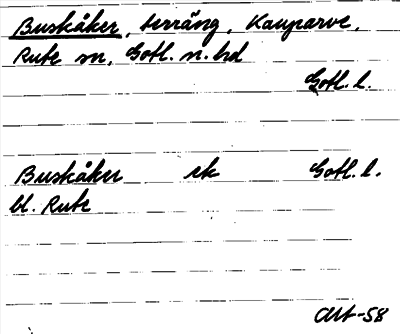 Buskåker, terräng, Kauparve,
Rute sn, Gotl. n. hd
Gotl. l.
Buskåker ek Gotl. l.
bl. Rute